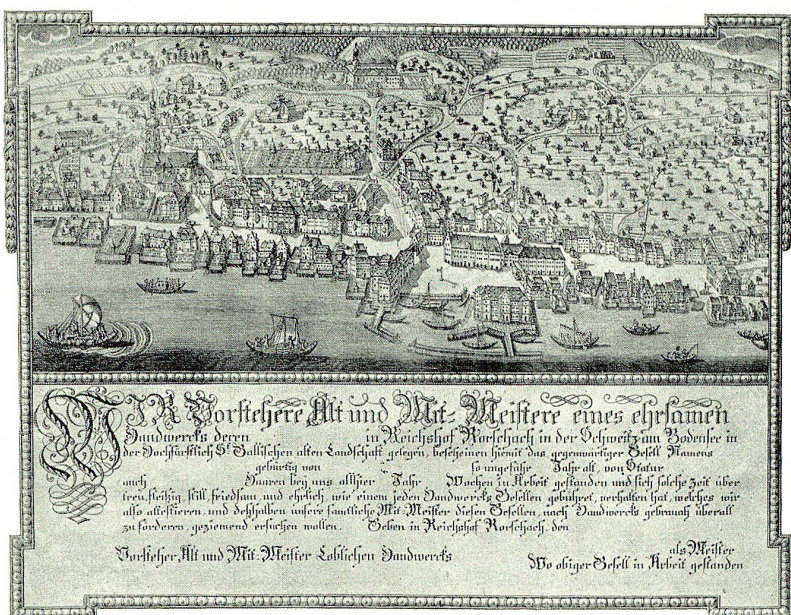 WIR Vorstehere Alt und Mit-Meistere eines ehrsamen
Handwercks deren in Reichshof Rorschach in der Schweitz am Bodensee in
der Hochfürstlich St. Gallischen alten Landschaft gelegen, bescheinen hiemit das gegenwärtiger Gesell Namens
gebürtig von so ungefähr Jahr alt, von Statur
auch Haaren bey uns allhier Jahr Wochen in Arbeit gestanden und sich solche Zeit über
treu, fleißig, still, friedsam, und ehrlich, wie einem jeden Handwercks Gesellen gebühret, verhalten hat, welches wir
also attestieren, und deßhalben unsere samtliche Mit-Meister diesen Gesellen, nach Handwercks gebrauch überall
zu fördern, geziemend ersuchen wollen. Geben in Reichshof Rorschach. den
Vorsteher, Alt und Mit-Meister Loblichen Handwercks
als Meister
Wo obiger Gesell in Arbeit gestanden